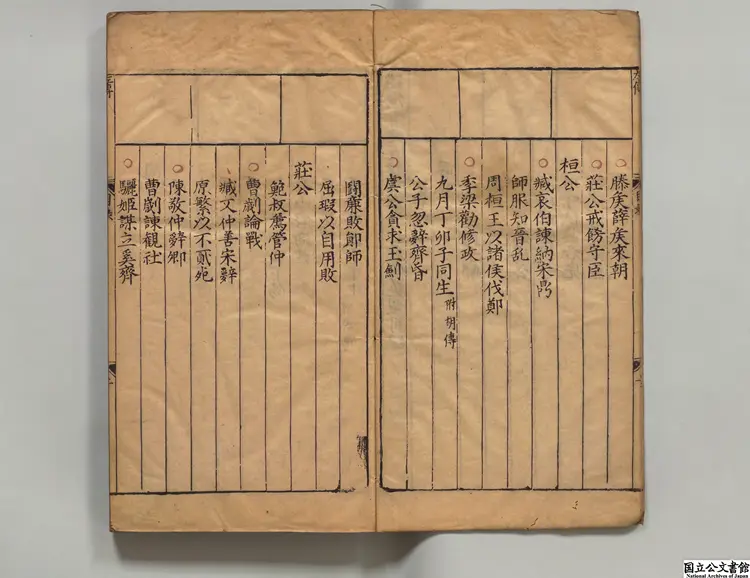 滕矦薛矦來朝
莊公戒飭守臣
桓公
臧哀伯諫納宋鼎
師服知晉乱
周桓王以諸矦伐鄭
季梁勸修政
九月丁卯子同生附胡傳
公子忽辭齊昏
虞公貪求玉劍
鬭廉敗鄖師
屈瑕以自用敗
莊公
鮑叔薦管仲
曹劌論戰
臧文仲善宋辭
原繁以不貳死
陳敬仲辭卿
曹劌諫觀社
驪姬謀立奚齊
国立公文書館
National Archives of Japan